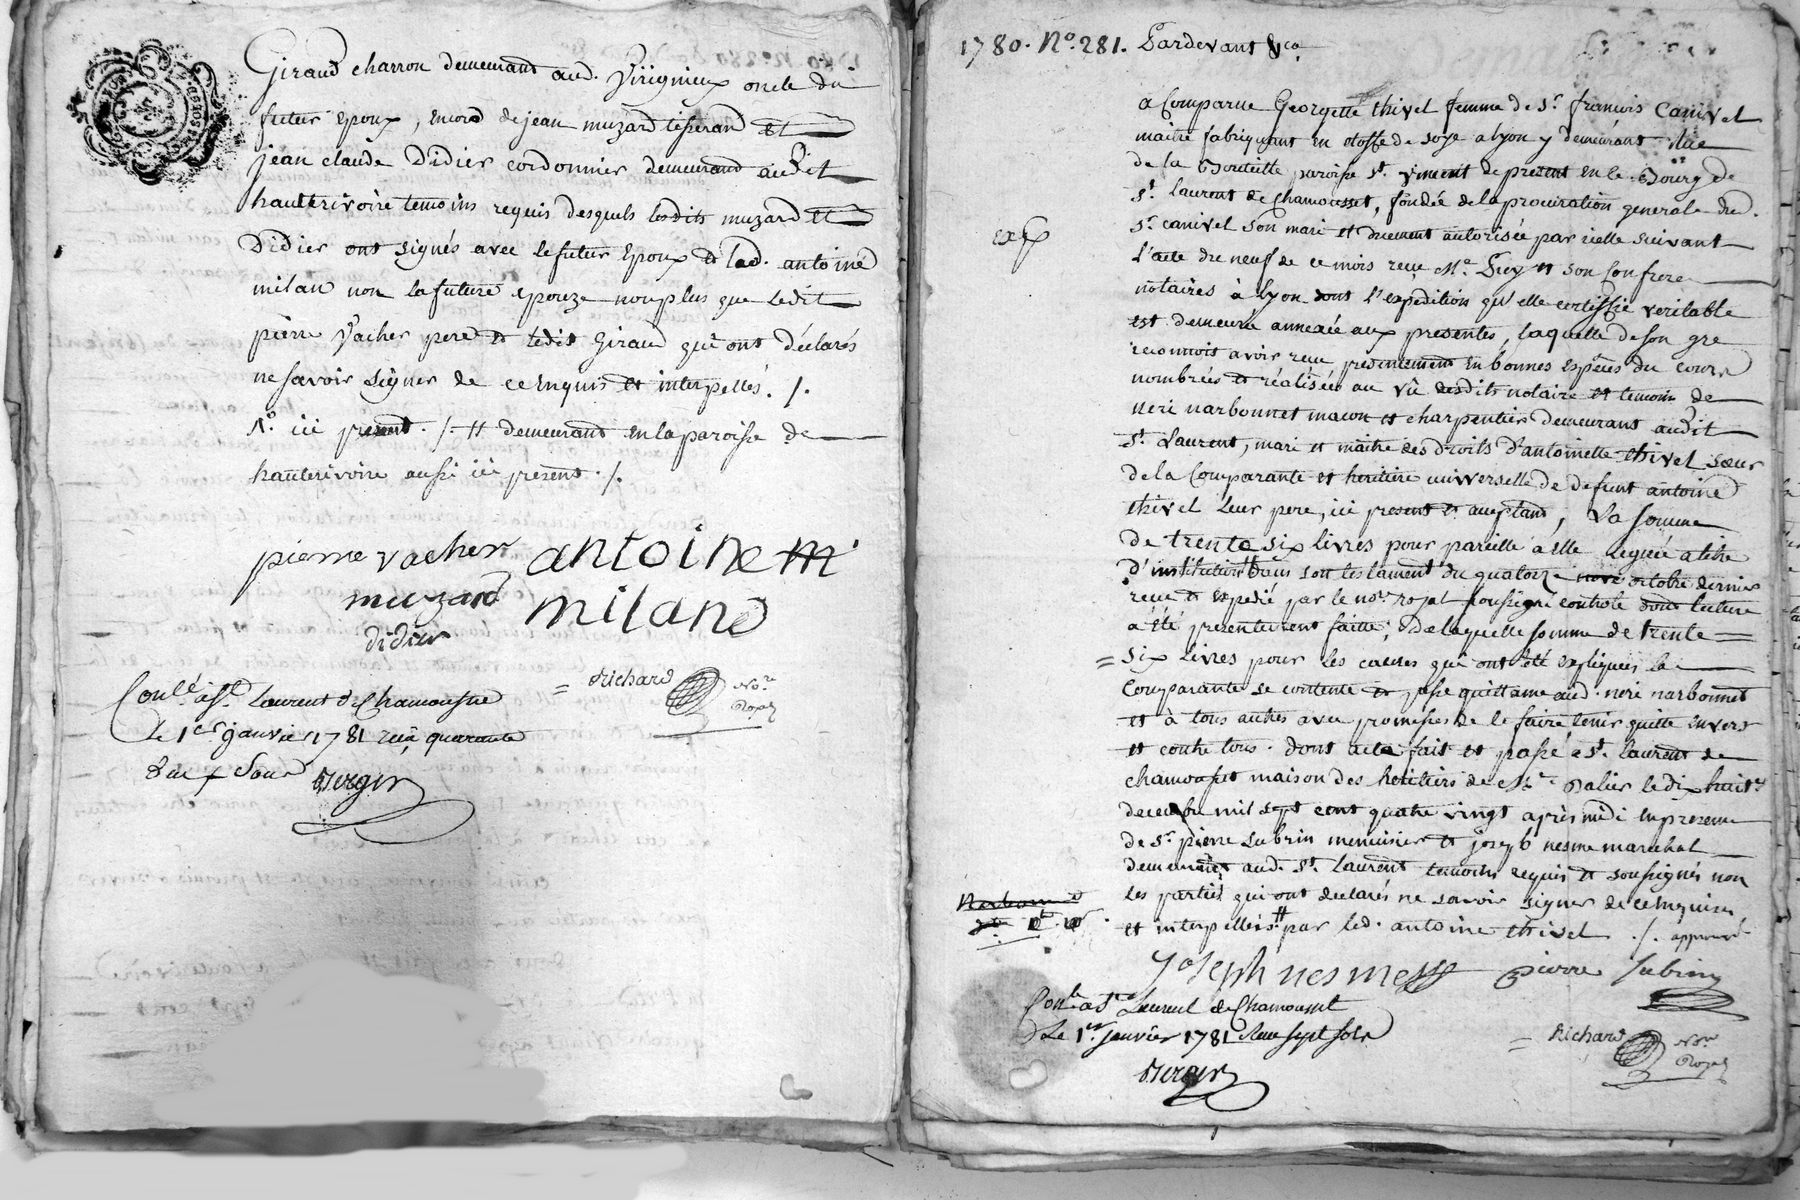 Giraud charron demeurant aud. Virignieux oncle du
futur epoux, encord de jean muzard tisserand et
jean claude Didier cordonnier demeurand audit
hauterivoire temoins requis desquels lesdits muzard et
Didier ont signés avec le futur epoux et lad. antoine
milan non la future epouze non plus que ledit
pierre Vacher pere et ledit Giraud qui ont déclarés
ne savoir signer de ce enquis et interpellés. /.
st. ici present ./. # demeurant en la paroisse de
hauterivoire aussi ici present ./.
pierre vacher antoine m
muzard milano
didier
Richard Nore Royal
Conlé à St. Laurent de Chamousset
Le 1er janvier 1781 reçu quarante
deux sous Berger
1780. No. 281. Pardevant &ca
a Comparue Georgette thivel femme de Sr. francois Canivel
maitre fabriquant en etoffe de soye a lyon y demeurant rue
de la Bouteille paroisse St. vincent de present en le Bourg de
St. laurent de Chamousset, fondée de la procuration generale dud.
exp
Sr. canivel son mari et duement autorisée par icelle suivant
l'acte du neuf de ce mois recu Me. Puy et son Confrere
notaires à lyon dont l'expedition qu'elle certiffie veritable
est demeurée annexée aux presentes, laquelle de son gre
reconnoit avoir recu presentement en bonnes especes du cours
nombrées et réalisées au vû desdits notaire et temoin de
neri narbonnet macon et charpentier demeurant audit
St. Laurent, mari et maitre des droits d'antoinette thivel soeur
de la Comparante et heritiere universelle de defunt antoine
thivel leur pere, ici present et acceptant, la somme
de trente six livres pour pareille à elle leguée a titre
d'institution # dans son testament du quatorze octobre dernier
recu et expedié par le nore royal soussigné controlé dont lecture
a été presentement faitte; De laquelle somme de trente
= six livres pour les causes qui ont été expliquées la
Comparante se contente et passe quittance aud. neri narbonnet
et à tous autres avec promesses de le faire tenir quitte envers
et contre tous. dont acte fait et passé a St. laurent de
chamousset maison des heritiers de Mr. Palier le dix huit
decembre mil sept cent quatre vingt après midi en presence
de Sr. pierre subrin menuisier et joseph nesme marechal
demeurant aud. St. Laurent temoins requis et soussignés non
les parties qui ont declarés ne savoir signer de ce enquises
et interpellés. # par led. antoine thivel ./. approuvé
joseph nesme pierre subrin
Conlé a St Laurent de Chamousset
Le 1er. janvier 1781 Reçu sept sols
Berger
Richard Nore Royal